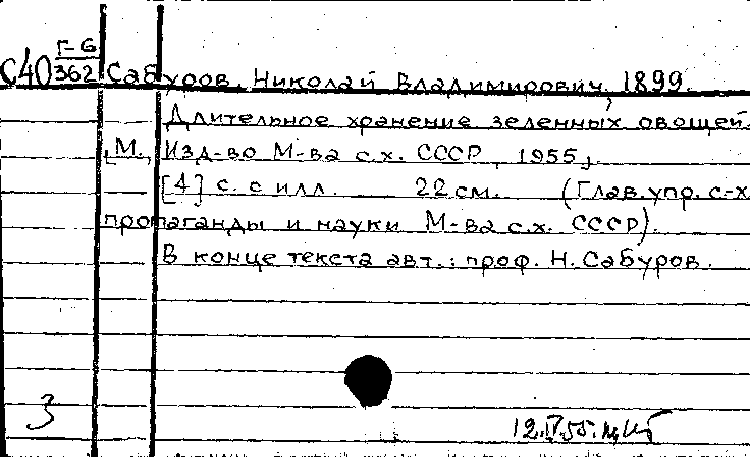 Г-6
С40 362 Сабуров, Николай Владимирович, 1899.
Длительное хранение зеленных овощей.
[М., Изд-во М-ва с.х. СССР, 1955],
[4] с. с илл. 22 см. (Глав. упр. с.-х
пропаганды и науки М-ва с.х. СССР).
В конце текста авт.: проф. Н. Сабуров.
3